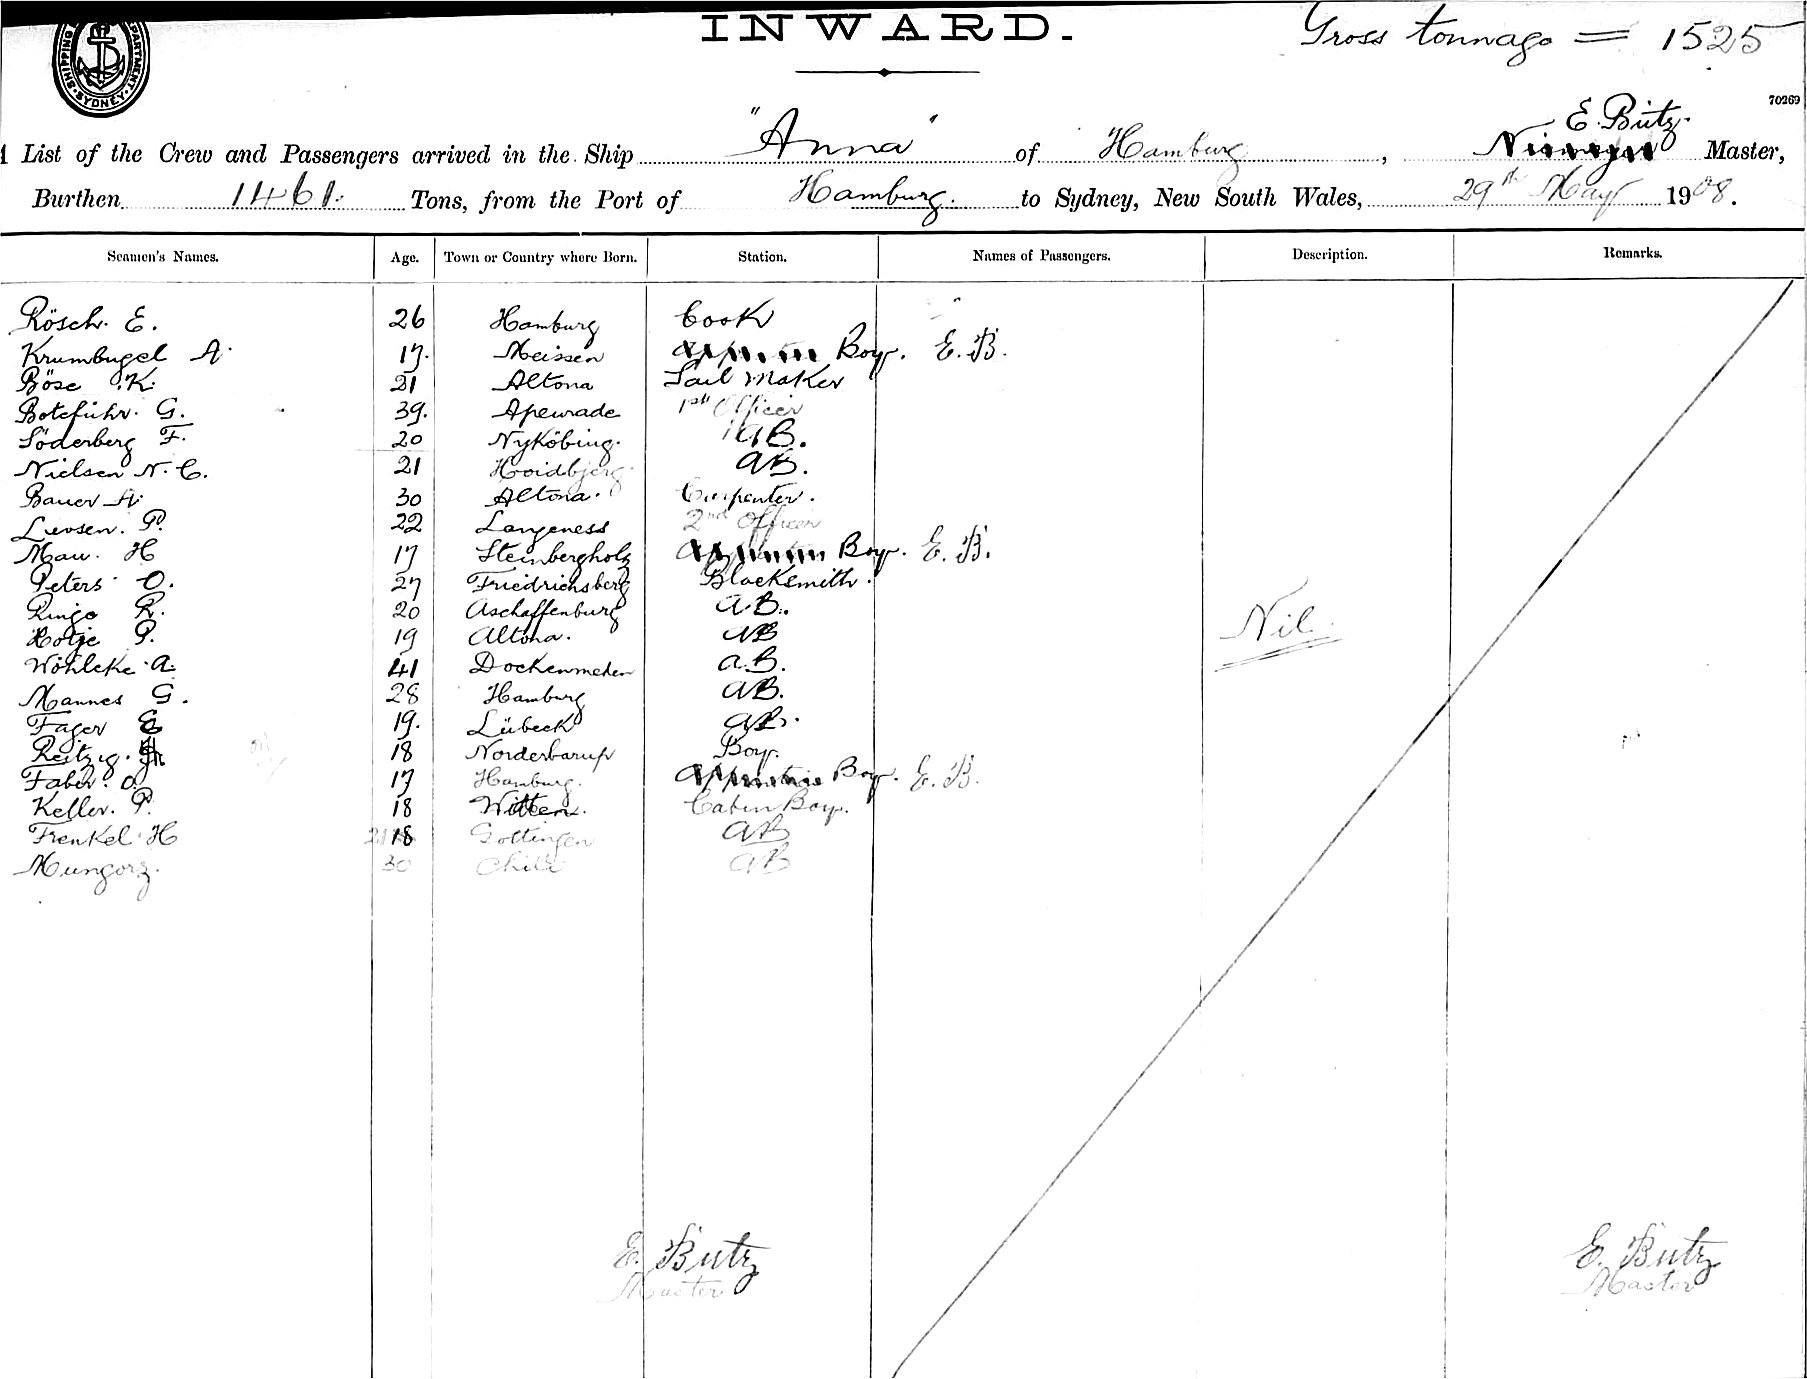 INWARD.
Gross tonnage = 1525
SHIPPING DEPARTMENT. SYDNEY.
70269
E. Butz.
List of the Crew and Passengers arrived in the Ship "Anna" of Hamburg, Master,
Burthen 1461. Tons, from the Port of Hamburg. to Sydney, New South Wales, 29th May 1908.
Seamen's Names. Age. Town or Country where Born. Station. Names of Passengers. Description. Remarks.
Rösch. E. 26 Hamburg Cook
Krumbugel A. 17. Meissen Boy. E. B.
Böse K. 21 Altona Sail Maker
Botefuhr. G. 39. Apenrade 1st Officer
Söderberg F. 20 Nyköbing. AB.
Nielsen N. C. 21 Hoidbjerg. AB.
Bauer A. 30 Altona. Carpenter.
Levsen. P. 22 Langeness 2nd Officer
Mau. H 17 Steinbergholz Boy. E. B.
Peters O. 27 Friedrichsberg Blacksmith.
Ringe R. 20 Aschaffenburg AB.
Hotje P. 19 Altona. AB
Nil.
Wöhleke A. 41 Dockenmeden a.B.
Mannes G. 28 Hamburg AB.
Fager E 19. Lübeck AB.
Reitzig. 18 Norderbarup Boy.
Faber. O. 17 Hamburg. Boy. E. B.
Keller. P. 18 Witten. Cabin Boy.
Frenkel H 18 Gottingen AB
Mungorz. 30 Chili AB
E. Butz
Master
E. Butz
Master